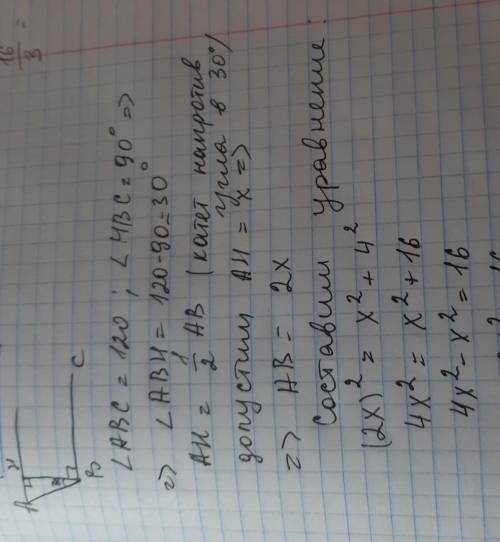 A H
B C
∠ABC = 120°; ∠HBC = 90° =>
=> ∠ABH = 120-90=30°
AH = 1/2 AB (катет напротив
угла в 30°)
допустим AH = x =>
=> AB = 2x
Составим уравнение:
(2x)² = x² + 4²
4x² = x² + 16
4x² - x² = 16
16/3 =